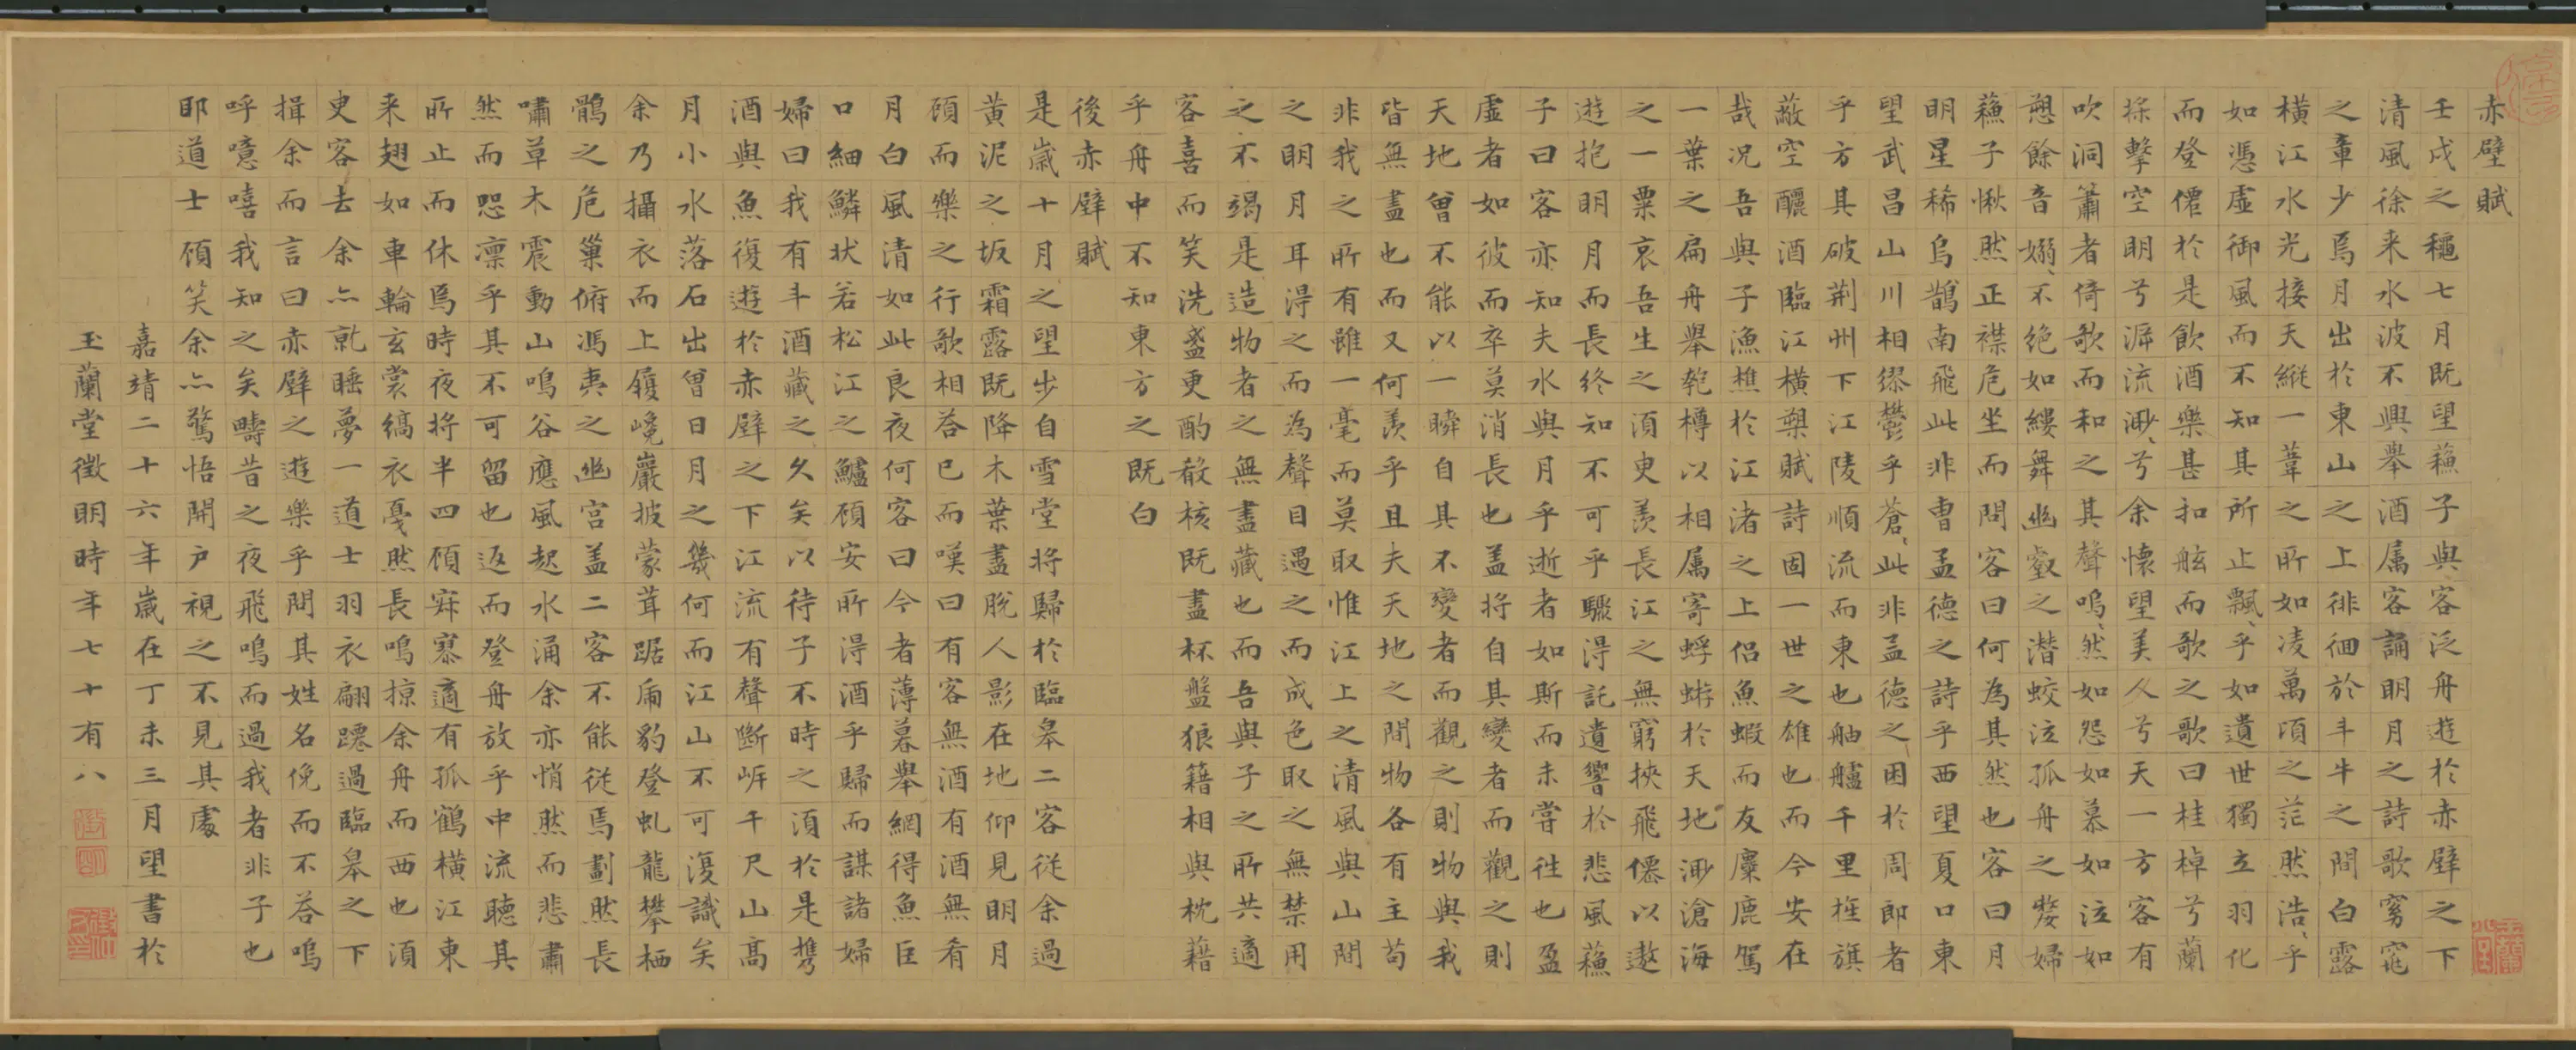 赤壁賦
壬戌之穐七月既望蘓子與客泛舟遊於赤壁之下
清風徐来水波不興舉酒属客誦明月之詩歌窈窕
之章少焉月出於東山之上徘徊於斗牛之間白露
橫江水光接天縱一葦之所如凌萬頃之茫然浩〻乎
如憑虛御風而不知其所止飄〻乎如遺世獨立羽化
而登僊於是飲酒樂甚扣舷而歌之歌曰桂棹兮蘭
槳擊空明兮泝流渺〻兮余懷望美人兮天一方客有
吹洞簫者倚歌而和之其聲嗚〻然如怨如慕如泣如
愬餘音嫋〻不絕如縷舞幽壑之潛蛟泣孤舟之嫠婦
蘓子愀然正襟危坐而問客曰何為其然也客曰月
明星稀烏鵲南飛此非曹孟德之詩乎西望夏口東
望武昌山川相繆鬱乎蒼〻此非孟德之困於周郎者
乎方其破荆州下江陵順流而東也舳艫千里旌旗
蔽空釃酒臨江橫槊賦詩固一世之雄也而今安在
哉况吾與子漁樵於江渚之上侣魚蝦而友麋鹿駕
一葉之扁舟舉匏樽以相属寄蜉蝣於天地渺滄海
之一粟哀吾生之須臾羨長江之無窮挾飛僊以遨
遊抱明月而長終知不可乎驟得託遺響於悲風蘓
子曰客亦知夫水與月乎逝者如斯而未嘗往也盈
虛者如彼而卒莫消長也盖将自其變者而觀之則
天地曾不能以一瞬自其不變者而觀之則物與我
皆無盡也而又何羨乎且夫天地之間物各有主苟
非我之所有雖一毫而莫取惟江上之清風與山間
之明月耳得之而為聲目遇之而成色取之無禁用
之不竭是造物者之無盡藏也而吾與子之所共適
客喜而笑洗盞更酌殽核既盡杯盤狼籍相與枕藉
乎舟中不知東方之既白
後赤壁賦
是歲十月之望步自雪堂将歸於臨皋二客從余過
黃泥之坂霜露既降木葉盡脫人影在地仰見明月
顧而樂之行歌相荅已而嘆曰有客無酒有酒無肴
月白風清如此良夜何客曰今者薄暮舉網得魚巨
口細鱗狀若松江之鱸顧安所得酒乎歸而謀諸婦
婦曰我有斗酒藏之久矣以待子不時之須於是攜
酒與魚復遊於赤壁之下江流有聲斷岸千尺山高
月小水落石出曾日月之幾何而江山不可復識矣
余乃攝衣而上履巉巖披蒙茸踞虎豹登虬龍攀栖
鶻之危巢俯馮夷之幽宮盖二客不能從焉劃然長
嘯草木震動山鳴谷應風起水涌余亦悄然而悲肅
然而恐凛乎其不可留也返而登舟放乎中流聽其
所止而休焉時夜将半四顧寂寥適有孤鶴橫江東
来翅如車輪玄裳縞衣戛然長鳴掠余舟而西也須
臾客去余亦就睡夢一道士羽衣翩躚過臨皋之下
揖余而言曰赤壁之遊樂乎問其姓名俛而不荅嗚
呼噫嘻我知之矣疇昔之夜飛鳴而過我者非子也
耶道士顧笑余亦驚悟開户視之不見其處
嘉靖二十六年歲在丁未三月望書於
玉蘭堂徵明時年七十有八